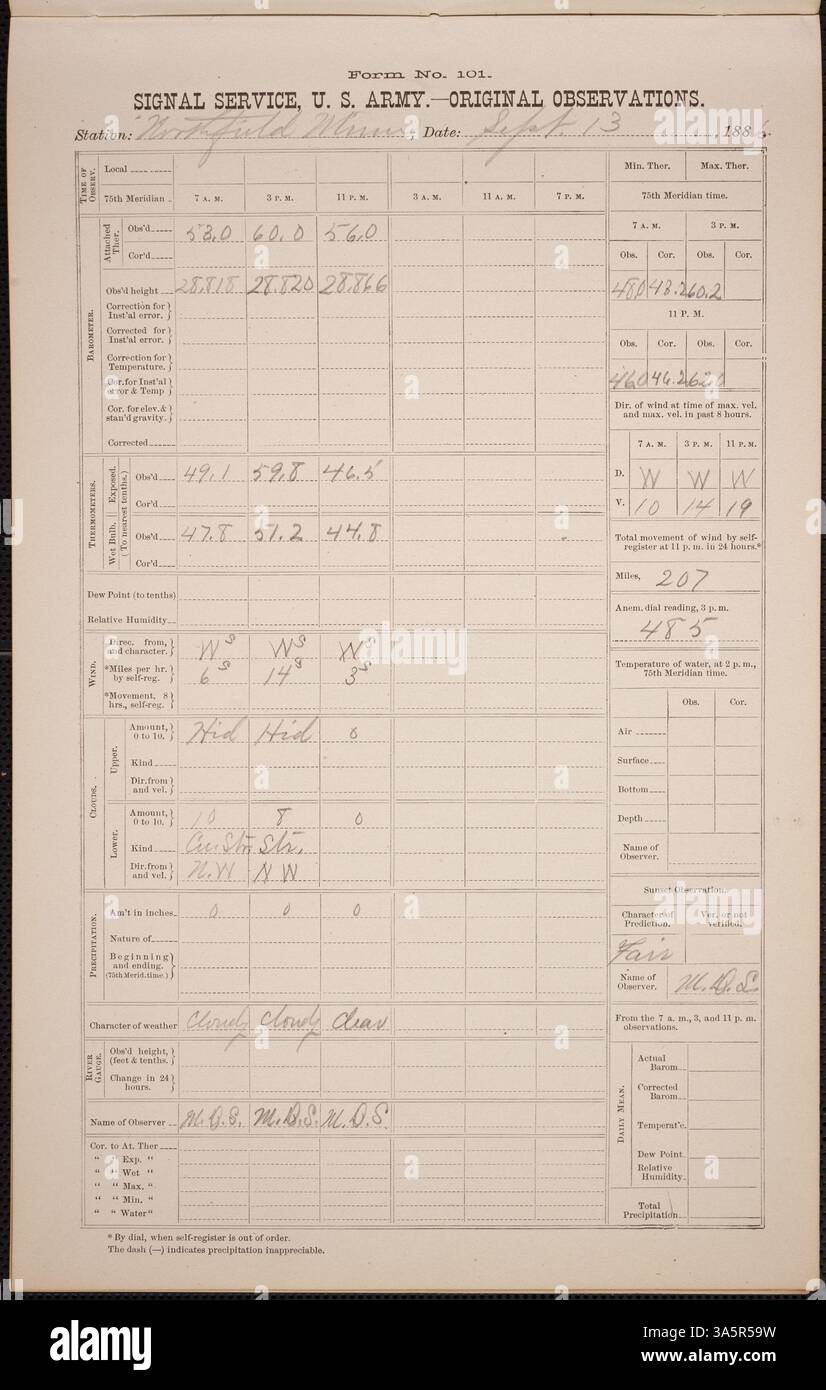 Form No. 101.
SIGNAL SERVICE, U. S. ARMY.—ORIGINAL OBSERVATIONS.
Station: Northfield Minn, Date: Sept. 13, 188
TIME OF OBSERV.
Local
75th Meridian 7 A. M. 3 P. M. 11 P. M. 3 A. M. 11 A. M. 7 P. M.
BAROMETER.
Attached Ther.
Obs'd 53.0 60.0 56.0
Cor'd
Obs'd height 28.818 28.820 28.866
Correction for Inst'al error.
Corrected for Inst'al error.
Correction for Temperature.
Cor. for Inst'al error & Temp
Cor. for elev. & stan'd gravity.
Corrected
THERMOMETERS.
(To nearest tenths.)
Exposed.
Obs'd 49.1 59.8 46.5
Cor'd
Wet Bulb.
Obs'd 47.8 51.2 44.8
Cor'd
Dew Point (to tenths)
Relative Humidity
WIND.
Direc. from, and character. W S W S W S
*Miles per hr. by self-reg. 6 S 14 S 3 S
*Movement, 8 hrs., self-reg.
CLOUDS.
Upper.
Amount, 0 to 10. Hid Hid 0
Kind
Dir. from and vel.
Lower.
Amount, 0 to 10. 10 8 0
Kind Cu Str. Str.
Dir. from and vel. N.W NW
PRECIPITATION.
Am't in inches 0 0 0
Nature of
Beginning and ending. (75th Merid. time.)
Character of weather Cloudy Cloudy Clear
RIVER GAUGE.
Obs'd height, (feet & tenths.)
Change in 24 hours.
Name of Observer M.D.S. M.D.S. M.D.S.
Cor. to At. Ther
“ “ Exp. “
“ “ Wet “
“ “ Max. “
“ “ Min. “
“ “ Water “
* By dial, when self-register is out of order.
The dash (—) indicates precipitation inappreciable.
Min. Ther. Max. Ther.
75th Meridian time.
7 A. M. 3 P. M.
Obs. Cor. Obs. Cor.
48.0 48.2 60.2
11 P. M.
Obs. Cor. Obs. Cor.
46.0 46.2
Dir. of wind at time of max. vel. and max. vel. in past 8 hours.
7 A. M. 3 P. M. 11 P. M.
D. W W W
V. 10 14 19
Total movement of wind by self-register at 11 p. m. in 24 hours.*
Miles, 207
Anem. dial reading, 3 p. m.
485
Temperature of water, at 2 p. m., 75th Meridian time.
Obs. Cor.
Air
Surface
Bottom
Depth
Name of Observer.
Sunset Observation.
Character of Prediction. Ver. or not verified.
Fair
Name of Observer. M.D.S.
From the 7 a. m., 3, and 11 p. m. observations.
DAILY MEAN.
Actual Barom.
Corrected Barom.
Temperat'e.
Dew Point.
Relative Humidity.
Total Precipitation
alamy
Image ID: 3A5R59W
www.alamy.com